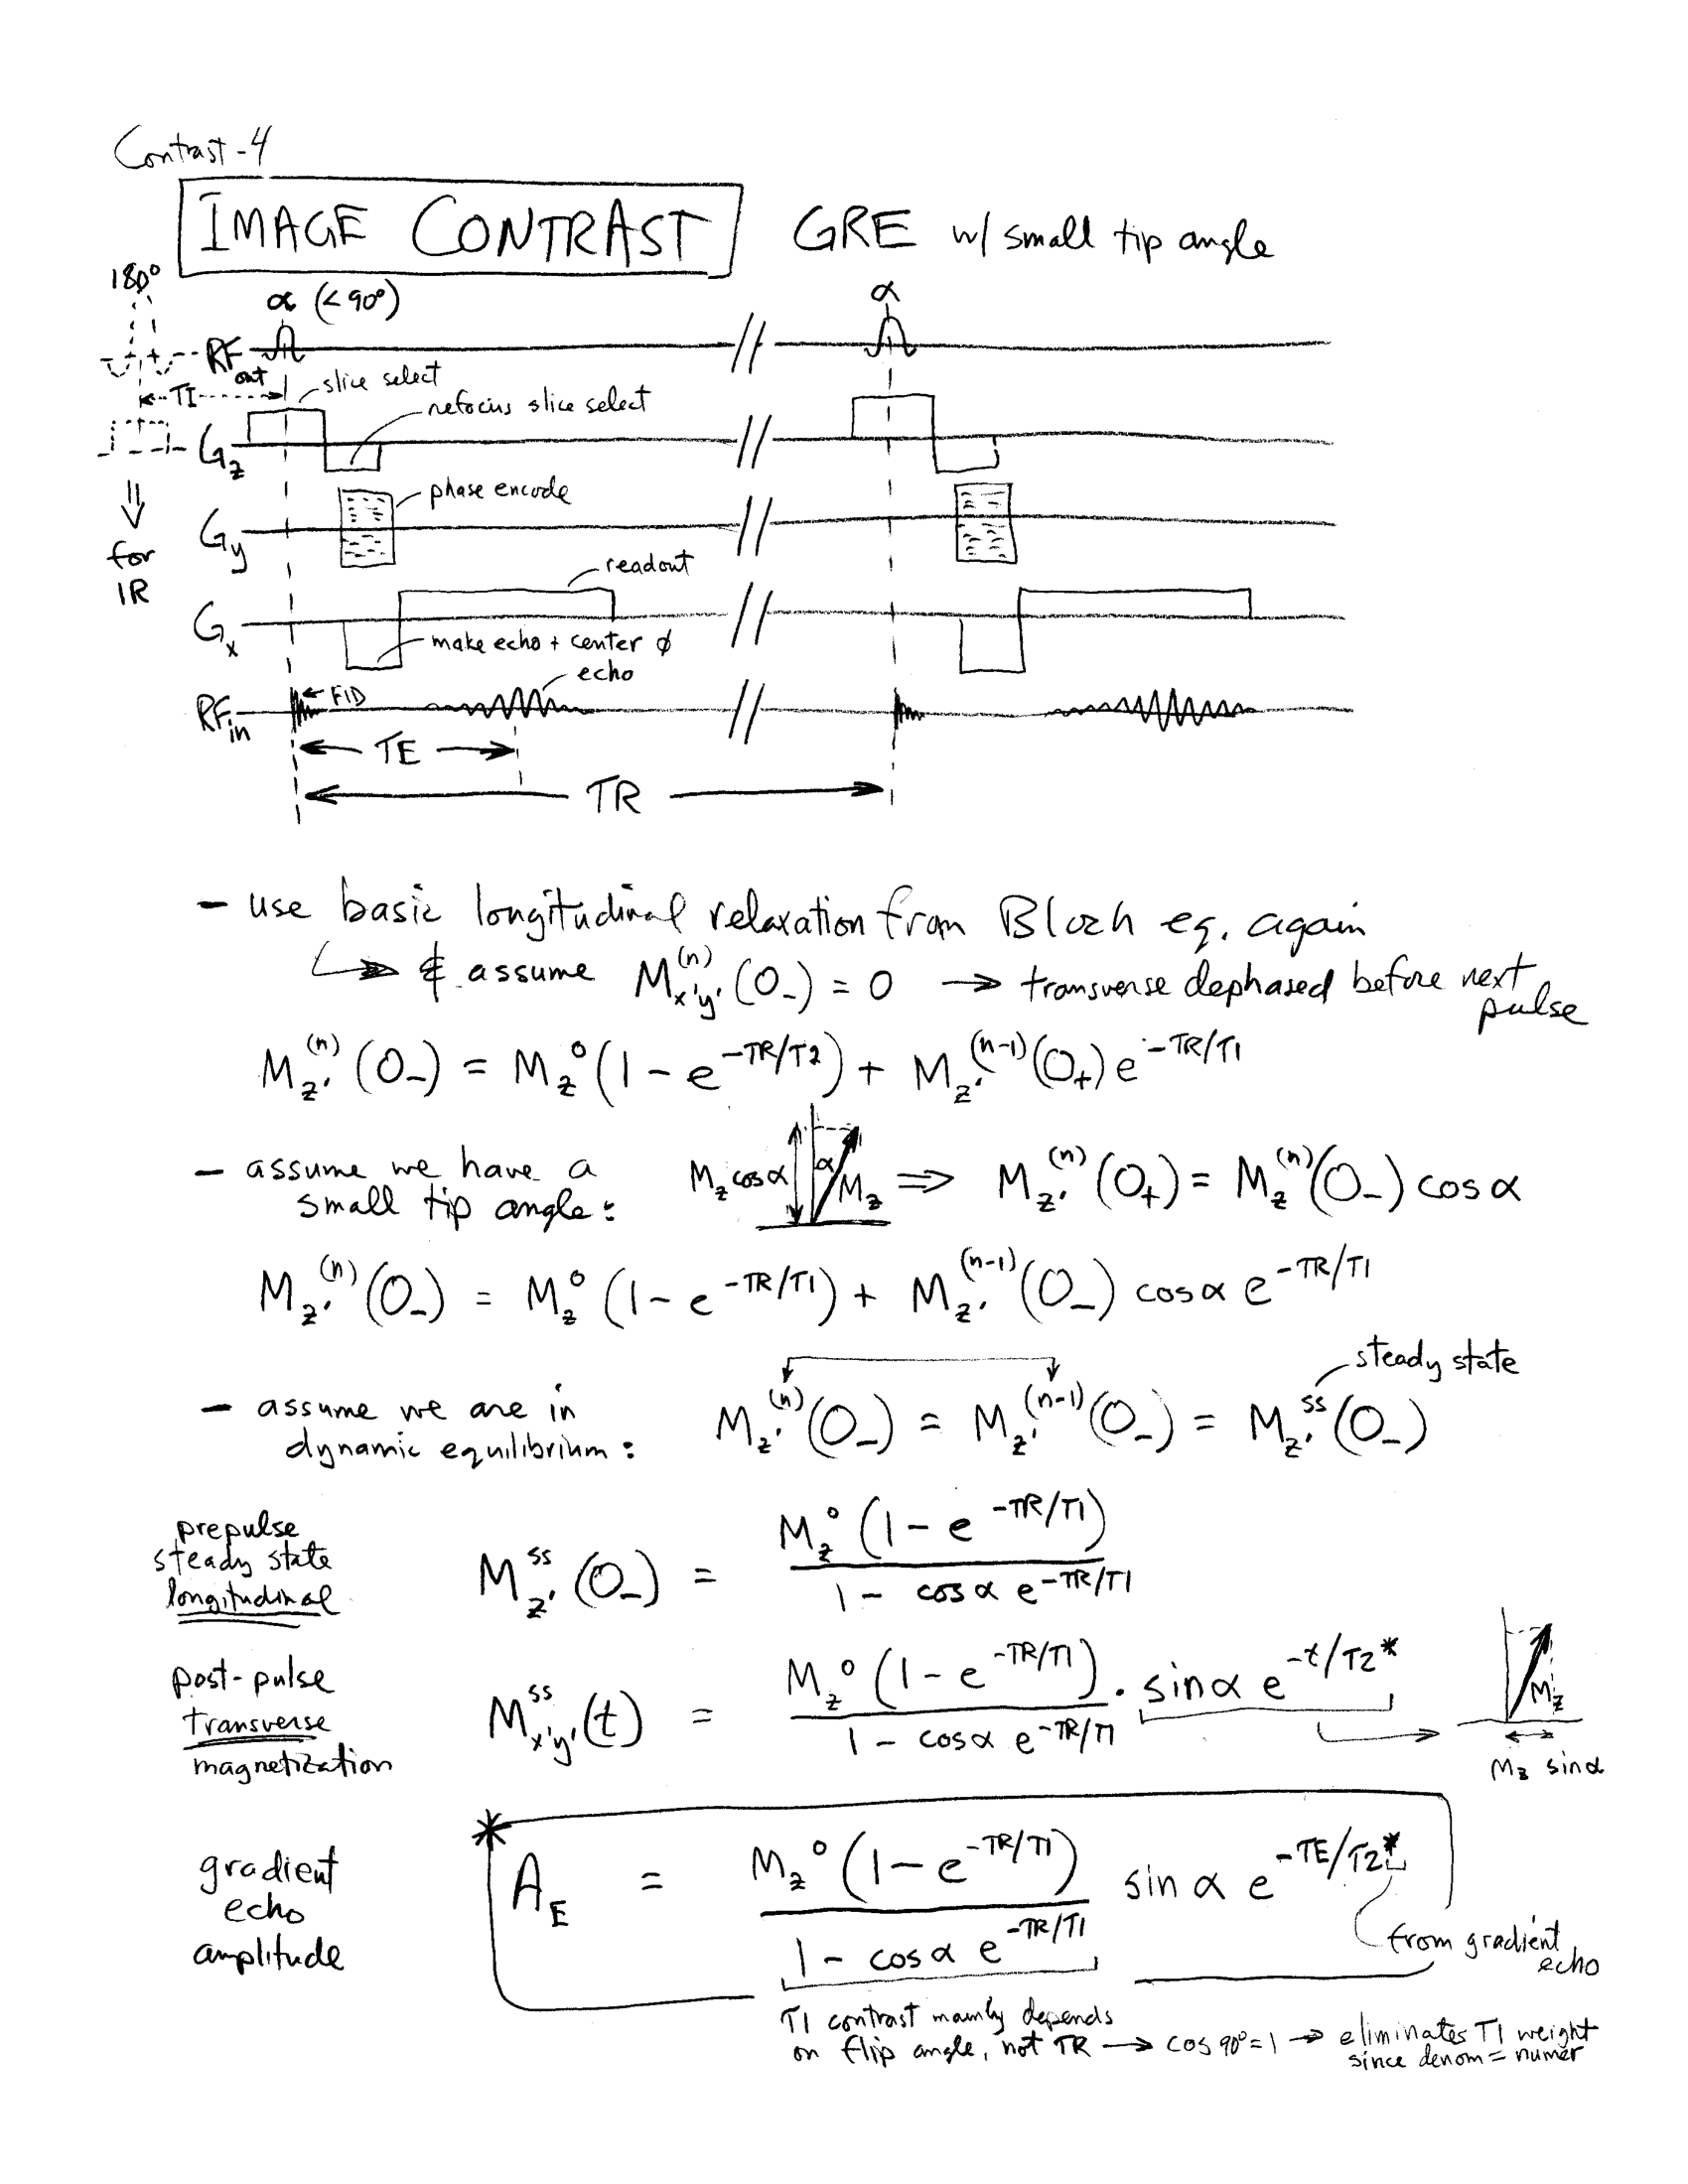 Contrast-4
IMAGE CONTRAST GRE w/ small tip angle
180°
α (<90°) α
RF out
TI
slice select
refocus slice select
G_z
phase encode
G_y
⇓
for
IR
readout
G_x
make echo + center ϕ
echo
RF_in ← FID
← TE →
← TR →
– use basic longitudinal relaxation from Bloch eq. again
↳ & assume M_x'y'^(n)(0_-) = 0 → transverse dephased before next
pulse
M_z'^(n)(0_-) = M_z^0(1 - e^-TR/T2) + M_z'^(n-1)(0_+) e^-TR/T1
– assume we have a
small tip angle:
M_z cosα α M_z ⇒ M_z'^(n)(0_+) = M_z^(n)(0_-) cosα
M_z'^(n)(0_-) = M_z^0 (1 - e^-TR/T1) + M_z'^(n-1)(0_-) cosα e^-TR/T1
steady state
– assume we are in
dynamic equilibrium:
M_z'^(n)(0_-) = M_z'^(n-1)(0_-) = M_z'^ss(0_-)
prepulse
steady state
longitudinal
M_z'^ss(0_-) = M_z^0 (1 - e^-TR/T1) / 1 - cosα e^-TR/T1
post-pulse
transverse
magnetization
M_x'y'^ss(t) = M_z^0 (1 - e^-TR/T1) / 1 - cosα e^-TR/T1 · sinα e^-t/T2*
M_z
M_z sinα
gradient
echo
amplitude
* A_E = M_z^0 (1 - e^-TR/T1) / 1 - cosα e^-TR/T1 sinα e^-TE/T2*
from gradient
echo
T1 contrast mainly depends
on flip angle, not TR → cos 90°=1 → eliminates T1 weight
since denom = numer